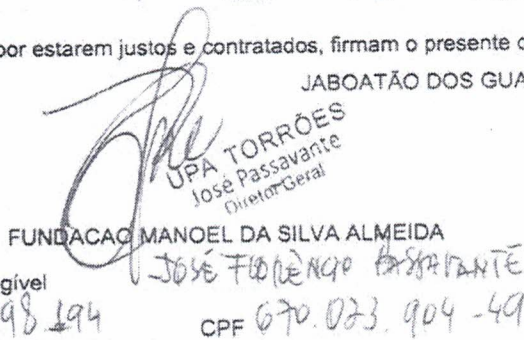 por estarem justos e contratados, firmam o presente c
JABOATÃO DOS GUA
UPA TORRÕES
José Passavante
Diretor Geral
FUNDACAO MANOEL DA SILVA ALMEIDA
gível
JOSÉ FLORÊNCIO PASSAVANTE
98.194
CPF 670.023.904-49